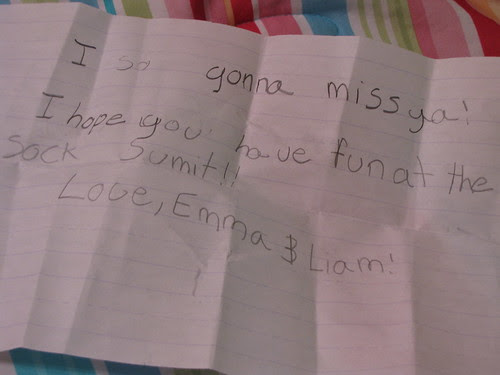 I so gonna miss ya!
I hope you have fun at the
Sock Sumit!!
Love, Emma & Liam!